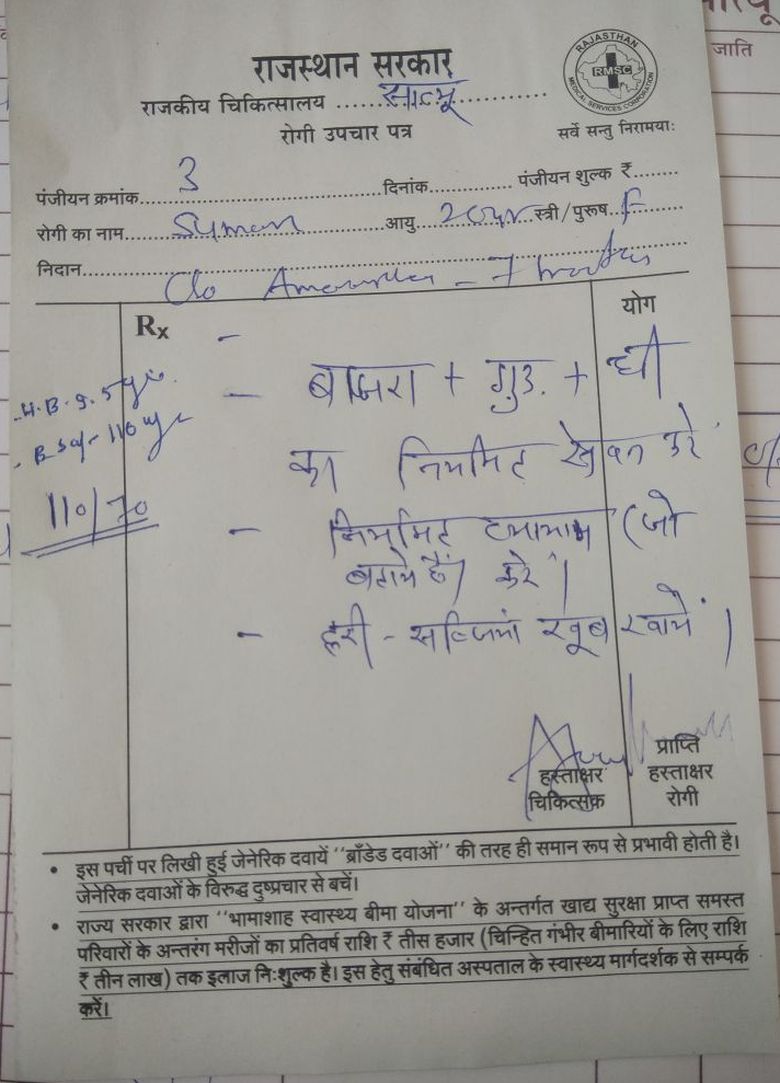 जाति
राजस्थान सरकार
RAJASTHAN
RMSC
MEDICAL SERVICES CORPORATION
राजकीय चिकित्सालय ...............................
रोगी उपचार पत्र
सर्वे सन्तु निरामयाः
पंजीयन क्रमांक 3 दिनांक............ पंजीयन शुल्क ₹........
रोगी का नाम Suman आयु 20yr स्त्री/पुरूष F
निदान
C/o Amenorrhea - 7 months
Rx
योग
- बाजरा + गुड + घी
H.B. 9.5
का नियमित सेवन करें
110/70
- नियमित व्यायाम (जो
बताये हैं) करें।
- हरी - सब्जियां खूब खायें।
हस्ताक्षर
चिकित्सक
प्राप्ति
हस्ताक्षर
रोगी
• इस पर्ची पर लिखी हुई जेनेरिक दवायें ''ब्राँडेड दवाओं'' की तरह ही समान रूप से प्रभावी होती है।
जेनेरिक दवाओं के विरुद्ध दुष्प्रचार से बचें।
• राज्य सरकार द्वारा ''भामाशाह स्वास्थ्य बीमा योजना'' के अन्तर्गत खाद्य सुरक्षा प्राप्त समस्त
परिवारों के अन्तरंग मरीजों का प्रतिवर्ष राशि ₹ तीस हजार (चिन्हित गंभीर बीमारियों के लिए राशि
₹ तीन लाख) तक इलाज निःशुल्क है। इस हेतु संबंधित अस्पताल के स्वास्थ्य मार्गदर्शक से सम्पर्क
करें।